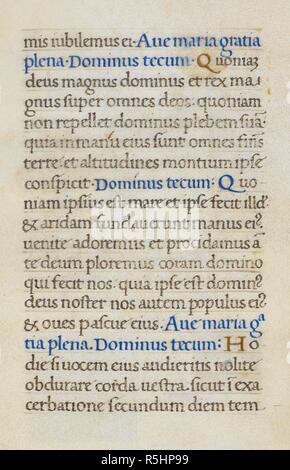 mis iubilemus ei. Aue maria gratia
plena. Dominus tecum. Quoniaz
deus magnus dominus et rex ma
gnus super omnes deos. quoniam
non repellet dominus plebem suā.
quia in manu eius sunt omnes fines
terre et altitudines montium ipse
conspicit. Dominus tecum. Quo
niam ipsius est mare et ipse fecit illd
& aridam fundauerunt manus ei?
uenite adoremus et procidamus ā
te deum ploremus coram domino
qui fecit nos. quia ipse est domin?
deus noster nos autem populus ei?
& oues pascue eius. Aue maria gᵃ
tia plena. Dominus tecum: Ho
die si uocem eius audieritis nolite
obdurare corda uestra. sicut ī exa
cerbatione secundum diem tem
alamy
R5HP99